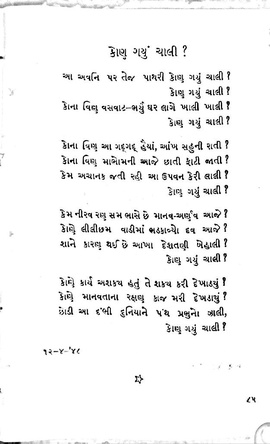 કોણ ગયું ચાલી ?
આ અવનિ પર તેજ પાથરી કોણ ગયું ચાલી ?
કોણ ગયું ચાલી ?
કોના વિણુ વસવાટ-ભર્યું ઘર લાગે ખાલી ખાલી ?
કોણ ગયું ચાલી ?
કોના વિણ આ ગદ્‌ગદ્ હૈયાં, આંખ સહુની રાતી ?
કોના વિણુ માભોમની આજે છાતી ફાટી જાતી ?
કેમ અચાનક જતી રહી આ ઉપવન કેરી લાલી ?
કોણ ગયું ચાલી ?
કેમ નીરવ રણ સમ ભાસે છે માનવ-અર્ણવ આજે ?
કોણે લીલીછમ વાડીમાં ભડકાવ્યો દવ આજે ?
શાને કારણ થઈ છે આખા દેશતણી બેહાલી ?
કોણ ગયું ચાલી ?
કોણે કાર્ય અશકય હતું તે શકય કરી દેખાડ્યું ?
કોણે માનવતાના રક્ષણ કાજ મરી દેખાડ્યું ?
છાંડી આ દંભી દુનિયાને પંથ પ્રભુનો ઝાલી,
કોણ ગયું ચાલી ?
૧૨-૪-'૪૮
૮૫